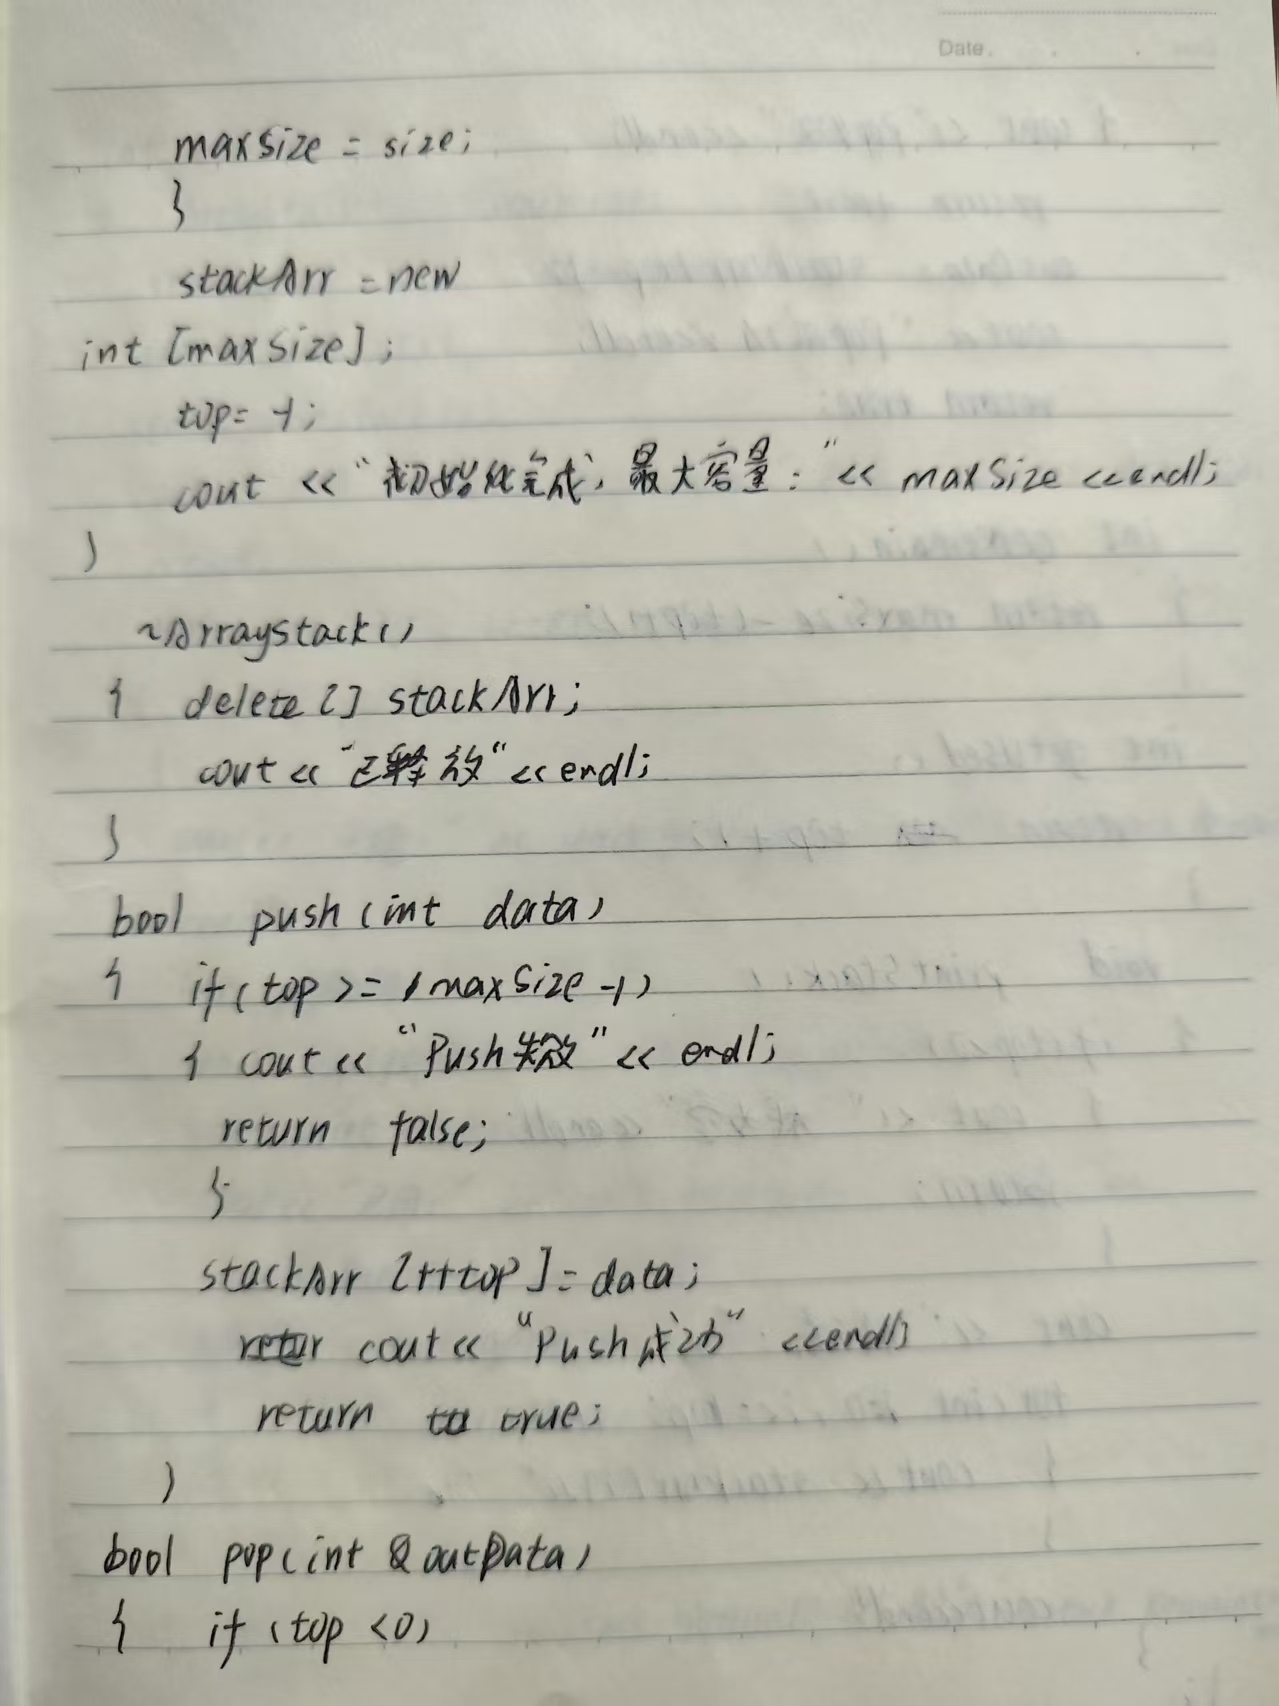 Date.
maxSize = size;
}
stackArr = new
int [maxSize];
top = -1;
cout << "初始化完成，最大容量：" << maxSize << endl;
}
~Arraystack()
{ delete[] stackArr;
cout << "已释放" << endl;
}
bool push(int data)
{ if(top >= maxSize -1)
{ cout << "Push失败" << endl;
return false;
}
stackArr [++top] = data;
cout << "Push成功" << endl;
return true;
}
bool pop(int & outData)
{ if (top <0)